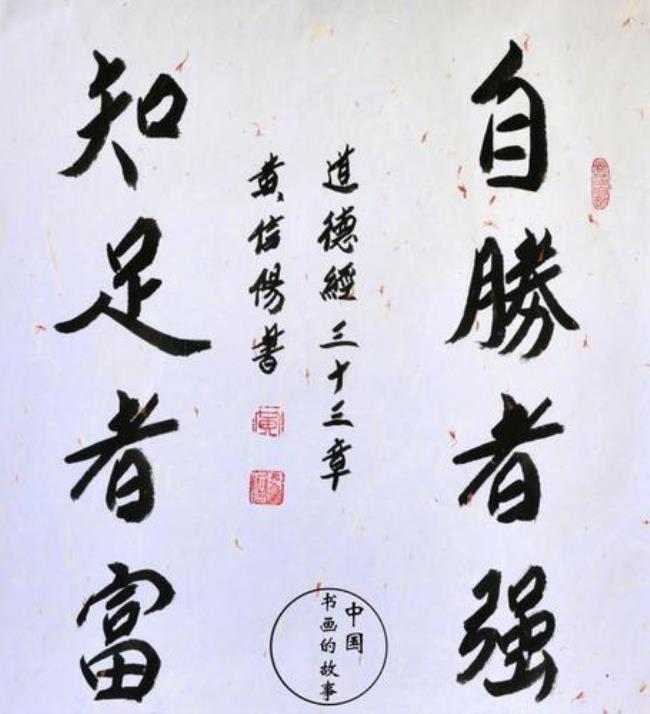 自勝者强
道德經三十三章
黄信陽書
知足者富
中国
书画的故事